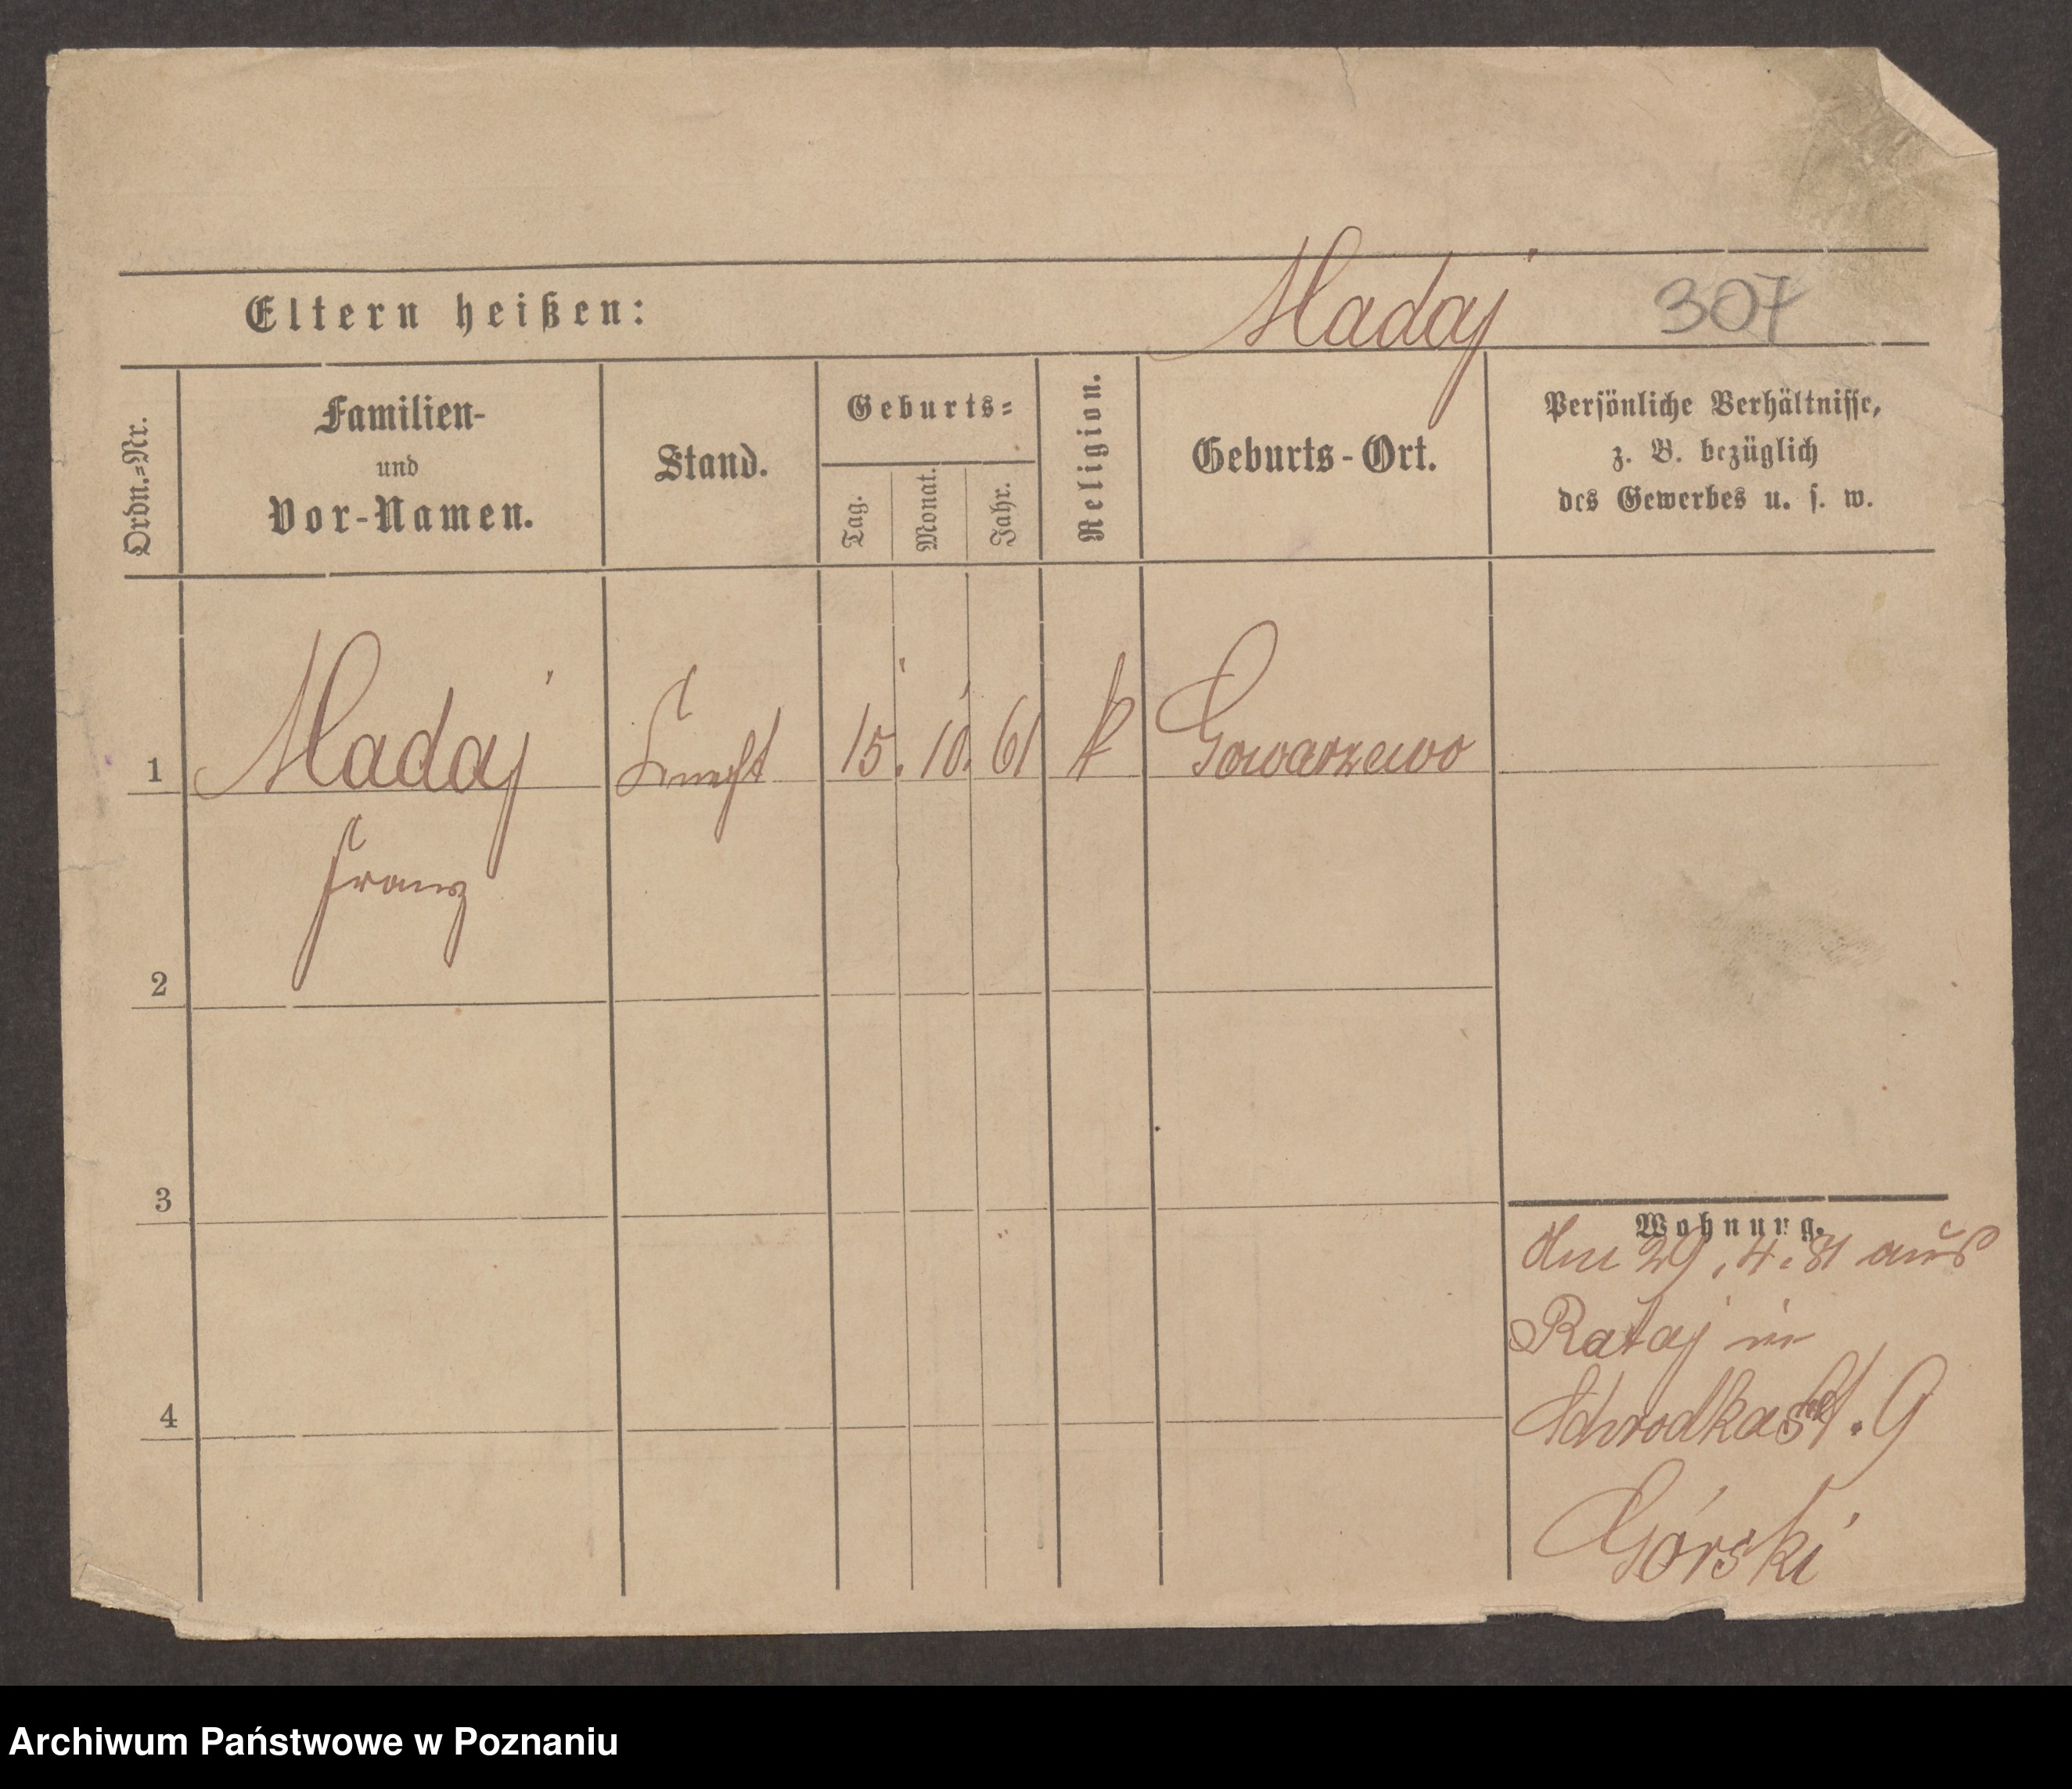 Madaj 307
Eltern heißen:
Ordn.=Nr.
Familien-
und
Vor-Namen.
Stand.
Geburts=
Tag.
Monat.
Jahr.
Religion.
Geburts-Ort.
Persönliche Verhältnisse,
z. B. bezüglich
des Gewerbes u. s. w.
1 Madaj Knecht 15. 10. 61 k Gowarzewo
Franz
2
3
4
Wohnung.
Am 29. 4. 81 aus
Rataj in
Schrodkast. 9
Górski
Archiwum Państwowe w Poznaniu